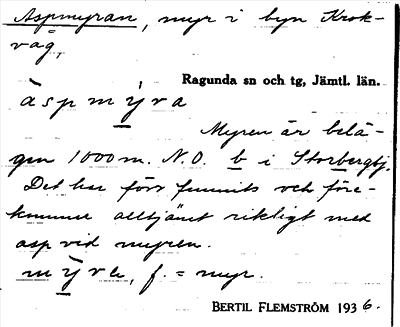 Aspmyran, myr i byn Krok-
våg,
Ragunda sn och tg, Jämtl. län.
àspmỳva
Myren är belä-
gen 1000 m. N.O. b i Storbergsj.
Det har förr funnits och före-
kommer alltjämt rikligt med
asp vid myren.
mỳva, f. = myr.
BERTIL FLEMSTRÖM 1936.